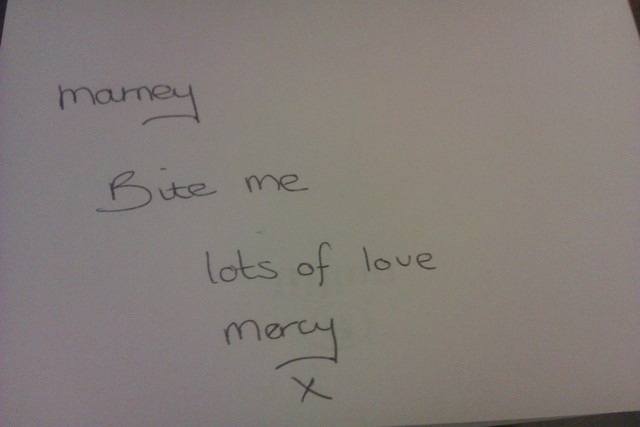 marney
Bite me
lots of love
mercy
x